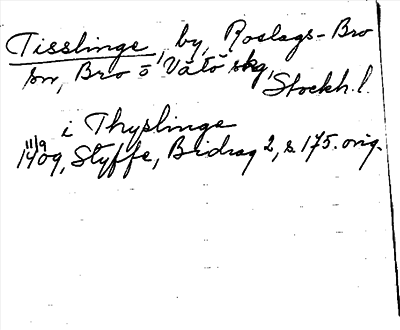 Tisslinge, by, Roslags-Bro
sn, Bro o Vätö skg,
Stockh. l.
i Thyslinge
11/9
1409, Styffe, Bidrag 2, s 175. orig.